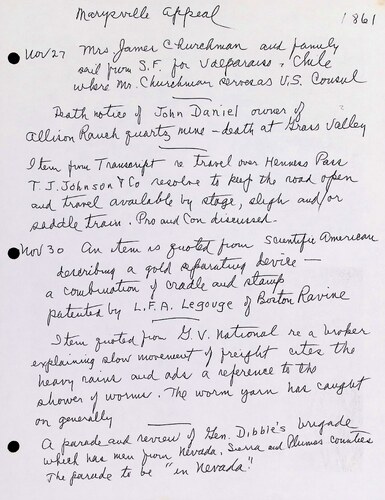 Marysville Appeal 1861
Nov 27 Mrs. James Churchman and family
sail from S.F. for Valparaiso, Chile
where Mr. Churchman serves as U.S. Consul
Death notice of John Daniel owner of
Allison Ranch quartz mine - death at Grass Valley
Item from Transcript re travel over Henness Pass
T. J. Johnson & Co resolve to keep the road open
and travel available by stage, sleigh and/or
saddle train. Pro and Con discussed.
Nov 30 An item is quoted from Scientific American
describing a gold separating device —
a combination of cradle and stamp
patented by L.F.A. Legouge of Boston Ravine
Item quoted from G.V. National re a
explaining slow movement of freight cites the
heavy rains and ads a reference to the
shower of worms. The worm yarn has caught
on generally
A parade and review of Gen. Dibble's brigade
which has men from Nevada, Sierra and Plumas counties
The parade to be "in Nevada."